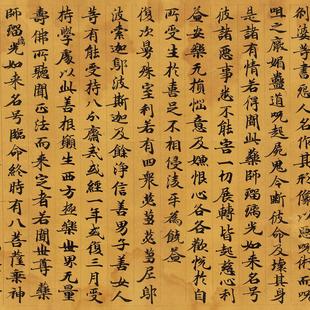 娑等書怨人名作其形像以惡呪術而呪
咀之厭媚蠱道呪起屍鬼令斷彼命及壞其身
是諸有情若得聞此藥師瑠璃光如來名号
彼諸惡事悉不能害一切展轉皆起慈心利
益安樂无損惱意及嫌恨心各各歡悅於自
所受生於喜足不相侵淩互為饒益
復次曼殊室利若有四衆苾蒭苾蒭尼鄔
波索迦鄔波斯迦及餘淨信善男子善女人
等有能受持八分齋戒或經一年或復三月受
持學處以此善根願生西方極樂世界无量
壽佛所聽聞正法而未定者若聞世尊藥
師瑠璃光如來名号臨命終時有八菩薩乘神